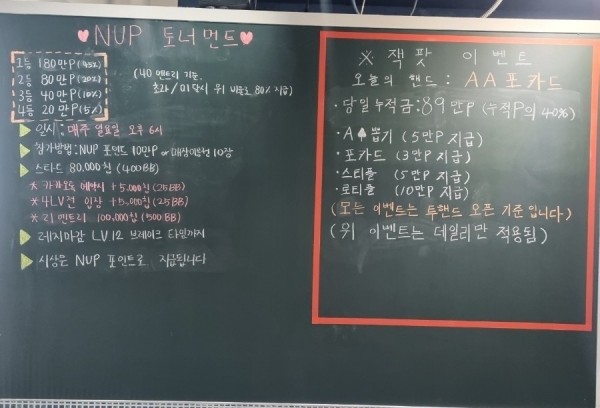 ♥NUP 토너먼트♥
1등 180만P(45%)
2등 80만P(20%)
3등 40만P(10%)
4등 20만P(5%)
(40 엔트리 기준.
초과/미달시 위 비율로 80% 지급)
▶ 일시 : 매주 일요일 오후 6시
▶ 참가방법 : NUP 포인트 10만P or 매장이용권 10장
▶ 스타트 80,000칩 (400BB)
※ 카카오톡 예약시 +5,000칩(25BB)
※ 4LV전 입장 +5,000칩 (25BB)
※ 리 엔트리 100,000칩 (500BB)
▶ 레지마감 LV.12 브레이크 타임까지
▶ 시상은 NUP 포인트로 지급됩니다
※ 잭팟 이벤트
오늘의 핸드 : AA포카드
· 당일 누적금 : 89만P (누적P의 40%)
· A♠뽑기 (5만P 지급)
· 포카드 (3만P 지급)
· 스티플 (5만P 지급)
· 로티플 (10만P 지급)
(모든 이벤트는 투핸드 오픈 기준입니다)
(위 이벤트는 데일리만 적용됨)